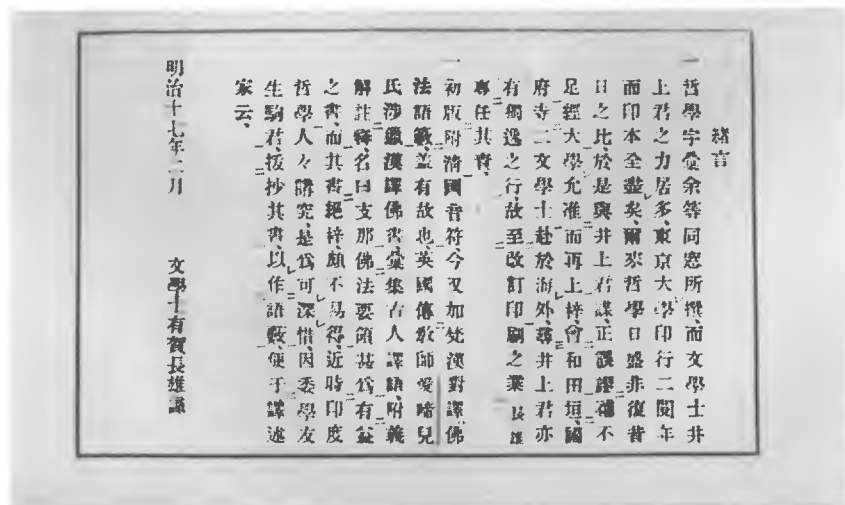 緒言
一 哲學字彙余等同窓所撰、而文學士井
上君之力居多、東京大學印行二閱年
而印本全盡矣、爾來哲學日盛非復昔
日之比、於是與井上君謀、正誤謬補不
足經大學允准而再上梓、會和田垣、國
府寺二文學士赴於海外、尋井上君亦
有獨逸之行、故至改訂印刷之業長雄
專任其責、
一 初版附淸國音符、今又加梵漢對譯、佛
法語籔、蓋有故也、英國傳敎師愛啼兒
氏涉獵漢譯佛書、彙集古人譯語、附義
解註釋、名曰支那佛法要領甚爲有益
之書、而其書絕梓、頗不易得、近時印度
哲學人々講究、是爲可深惜、因委學友
生駒君、拔抄其書、以作語籔、便于譯述
家云、
明治十七年二月 文學士有賀長雄識